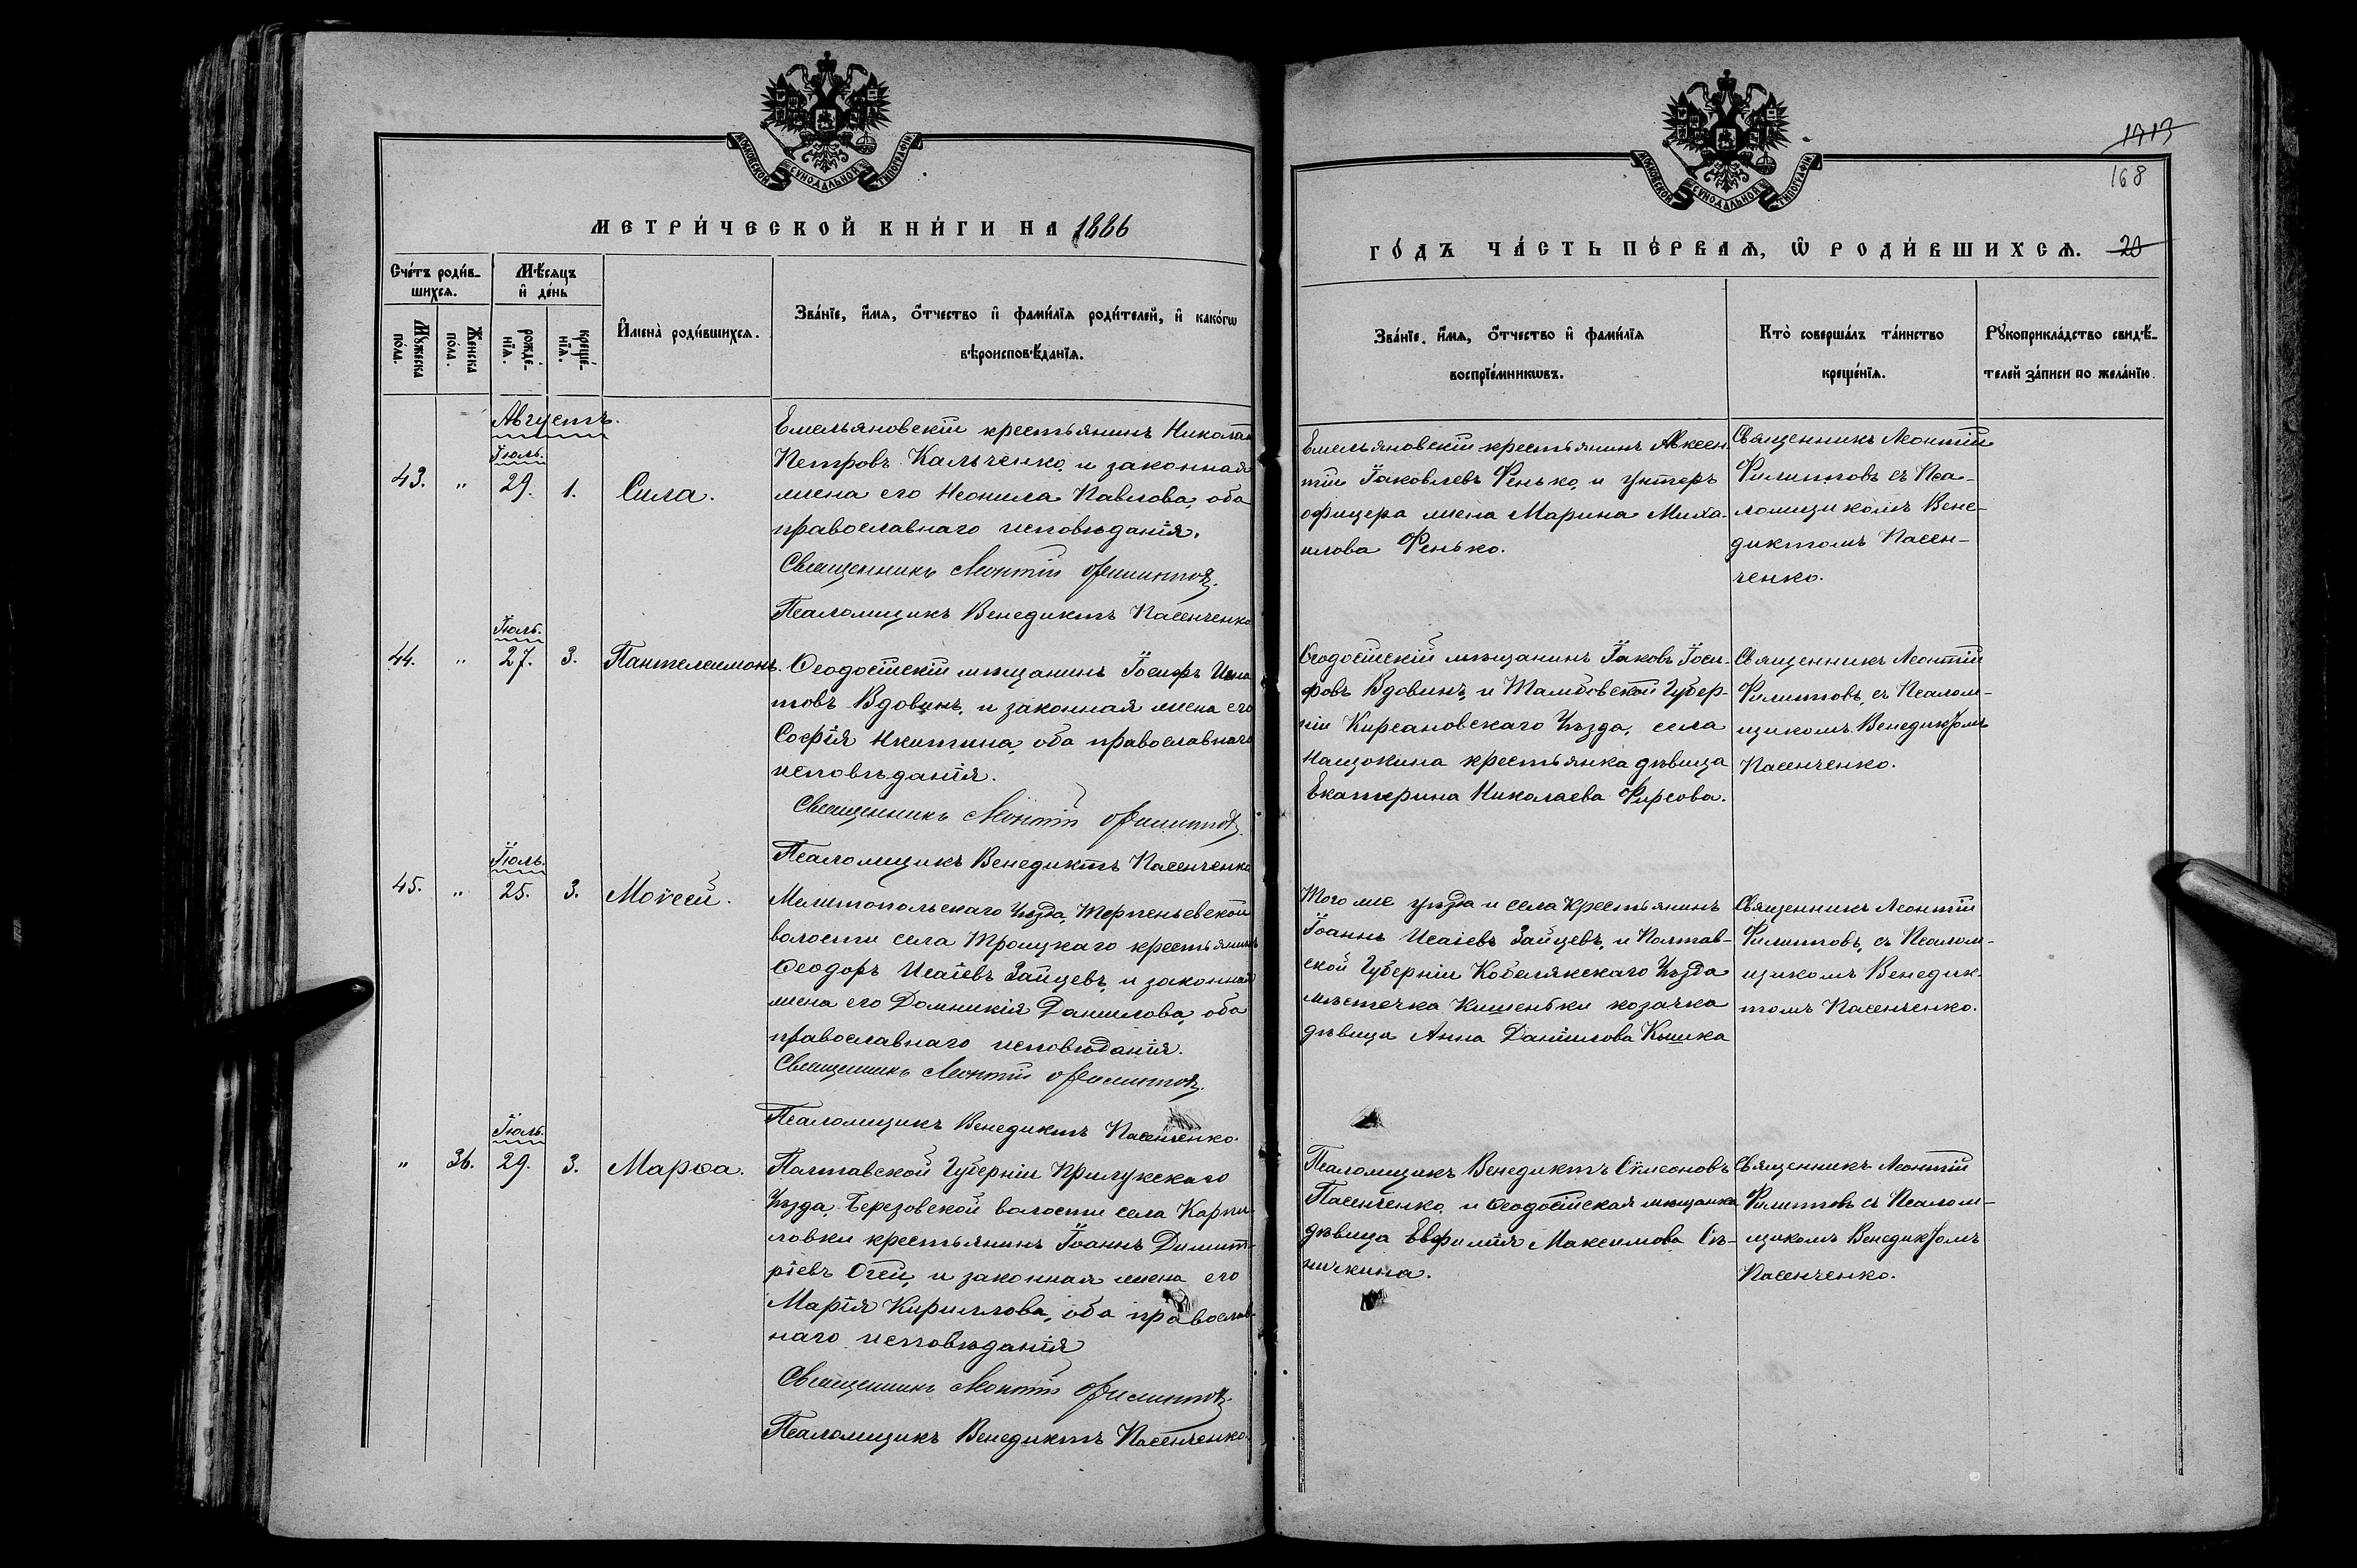 МОСКОВСКОЙ СУНОДАЛЬНОЙ ТИПОГРАФІИ
МЕТРИ́ЧЕСКОЙ КНИ́ГИ НА 1886
Сче́тъ роди́в-
шихся.
Мѣ́сяцъ
и҆ де́нь
Мꙋ́жеска
по́ла.
Же́нска
по́ла.
рожде́-
нїя.
креще́-
нїя.
И҆мена̀ роди́вшихся.
Зва́нїе, и҆́мя, ѻ҆́тчество и҆ фами́лїя роди́телей, и҆ како́гѡ
вѣроисповѣ́данїя.
Августъ.
Іюль.
43. " 29. 1. Сила.
Емельяновскій крестьянинъ Николай
Петровъ Кальченко, и законная
жена его Неонила Павлова, оба
православнаго исповѣданія.
Священникъ Леонтій Филиппов.
Псаломщикъ Венедиктъ Пасенченко
Іюль.
44. " 27. 3. Пантелеимонъ.
Ѳеодосійскій мѣщанинъ Іосифъ Игна
товъ Вдовинъ, и законная жена его
Софія Нкитина, оба православнаго
исповѣданія.
Священникъ Леонтій Филиппов.
Псаломщикъ Венедиктъ Пасенченко
Іюль.
45. " 25. 3. Моѵсей.
Мелитопольскаго Уѣзда, Терпеньевской
волости села Троицкаго крестьянинъ
Ѳеодоръ Исаіевъ Зайцевъ, и законная
жена его Домникія Даніилова, оба
православнаго исповѣданія.
Священникъ Леонтій Филиппов.
Псаломщикъ Венедиктъ Пасенченко.
Іюль.
" 36. 29. 3. Марѳа.
Полтавской Губерніи Прилукскаго
Уѣзда, Березовской волости села Карпи-
ловки крестьянинъ Іоаннъ Димит-
ріевъ Огей, и законная жена его
Марія Кириллова, оба православ-
наго исповѣданія
Священникъ Леонтій Филиппов.
Псаломщикъ Венедиктъ Пасенченко.
МОСКОВСКОЙ СУНОДАЛЬНОЙ ТИПОГРАФІИ
1713
168
ГО́ДЪ ЧА́СТЬ ПЕ́РВАЯ, Ѡ҆ РОДИ́ВШИХСЯ. 20
Зва́нїе, и҆́мя, ѻ҆́тчество и҆ фами́лїя
воспрїе́мникѡвъ.
Кто̀ соверша́лъ та́инство
креще́нїя.
Рꙋкоприкла́дство свидѣ́-
телей за́писи по жела́нїю.
Емельяновскій крестьянинъ Авксен-
тій Іаковлевъ Фенько, и унтеръ
офицера жена Марина Миха-
илова Фенько.
Священникъ Леонтій
Филипповъ съ Пса-
ломщикомъ Вене-
диктомъ Пасен-
ченко.
Ѳеодосійскій мѣщанинъ Іаковъ Іоси-
фовъ Вдовинъ, и Тамбовской Губер-
ніи Кирсановскаго Уѣзда, села
Нащокина крестьянка дѣвица
Екатерина Николаева Фирсова.
Священникъ Леонтій
Филипповъ, съ Псалом-
щикомъ Венедиктомъ
Пасенченко.
Того же уѣзда и села крестьянинъ
Іоаннъ Исаіевъ Зайцевъ, и Полтав-
ской Губерніи Кобелякскаго Уѣзда
мѣстечка Кишеньки козачка
дѣвица Анна Даніилова Кышка
Священникъ Леонтій
Филипповъ, съ Псалом-
щикомъ Венедик-
томъ Пасенченко.
Псаломщикъ Венедиктъ Сѵмеоновъ
Пасенченко, и Ѳеодосійская мѣщанка
дѣвица Евфимія Максимова Сѣ-
ничкина.
Священникъ Леонтій
Филипповъ съ Псалом-
щикомъ Венедиктомъ
Пасенченко.